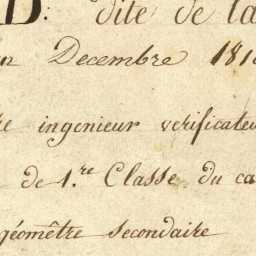 D. dite de la
Decembre 181
ingenieur verificateu
de 1.re Classe du ca
géomêtre secondaire